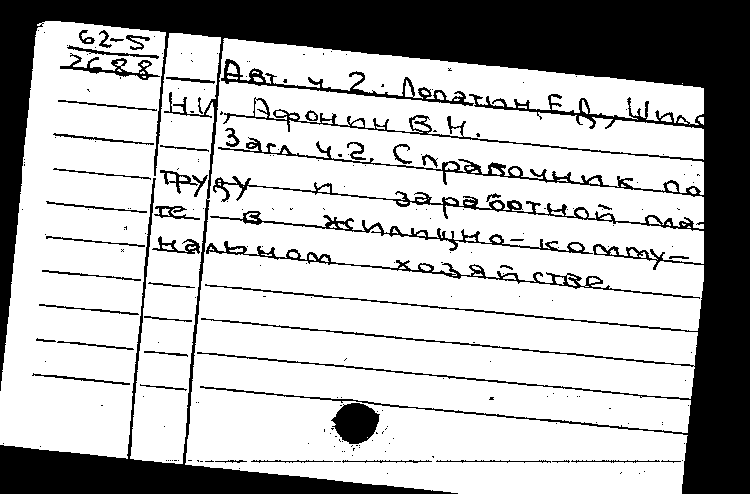 62-5
2688
Авт. ч. 2. Лопатин Е.Д.,
Н.И., Афонин В.Н.
Загл ч.2. Справочник по
труду и заработной пла-
те в жилищно-комму-
нальном хозяйстве.